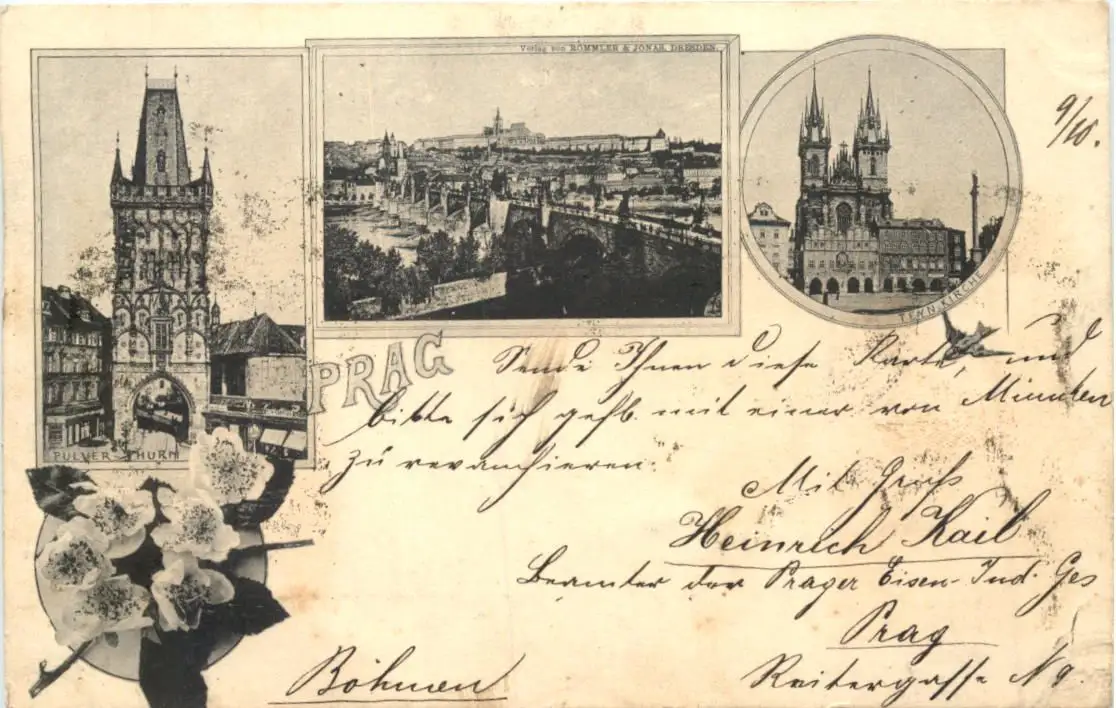 Verlag von RÖMMLER & JONAS, DRESDEN.
9/10.
PULVER-THURM
TEYNKIRCHE
PRAG
Sende Ihnen diese Karte, und
bitte sich gefl. mit einer von München
zu revanchieren.
Mit Gruß
Heinrich Kail
Beamter der Prager Eisen-Ind. Ges
Prag
Reitergasse N 9.
Böhmen